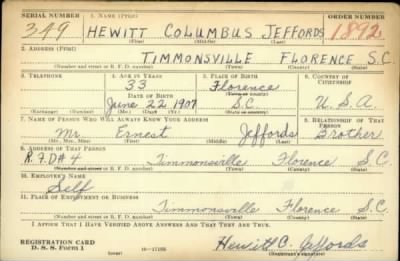 SERIAL NUMBER 1. NAME (Print) ORDER NUMBER
349 HEWITT COLUMBUS JEFFORDS 1892
(First) (Middle) (Last)
2. ADDRESS (Print)
TIMMONSVILLE FLORENCE S.C.
(Number and street or R. F. D. number) (Town) (County) (State)
3. TELEPHONE 4. AGE IN YEARS 5. PLACE OF BIRTH 6. COUNTRY OF CITIZENSHIP
33 Florence
DATE OF BIRTH (Town or county)
June 22 1907 S.C. U.S.A.
(Exchange) (Number) (Mo.) (Day) (Yr.) (State or country)
7. NAME OF PERSON WHO WILL ALWAYS KNOW YOUR ADDRESS 8. RELATIONSHIP OF THAT PERSON
Mr. Ernest Jeffords Brother
(Mr., Mrs., Miss) (First) (Middle) (Last)
9. ADDRESS OF THAT PERSON
R.F.D # 4 Timmonsville Florence S.C.
(Number and street or R. F. D. number) (Town) (County) (State)
10. EMPLOYER'S NAME
Self
11. PLACE OF EMPLOYMENT OR BUSINESS
Timmonsville Florence S.C.
(Number and street or R. F. D. number) (Town) (County) (State)
I AFFIRM THAT I HAVE VERIFIED ABOVE ANSWERS AND THAT THEY ARE TRUE.
REGISTRATION CARD
D. S. S. Form 1 (over) Hewitt C. Jeffords
(Registrant's signature)